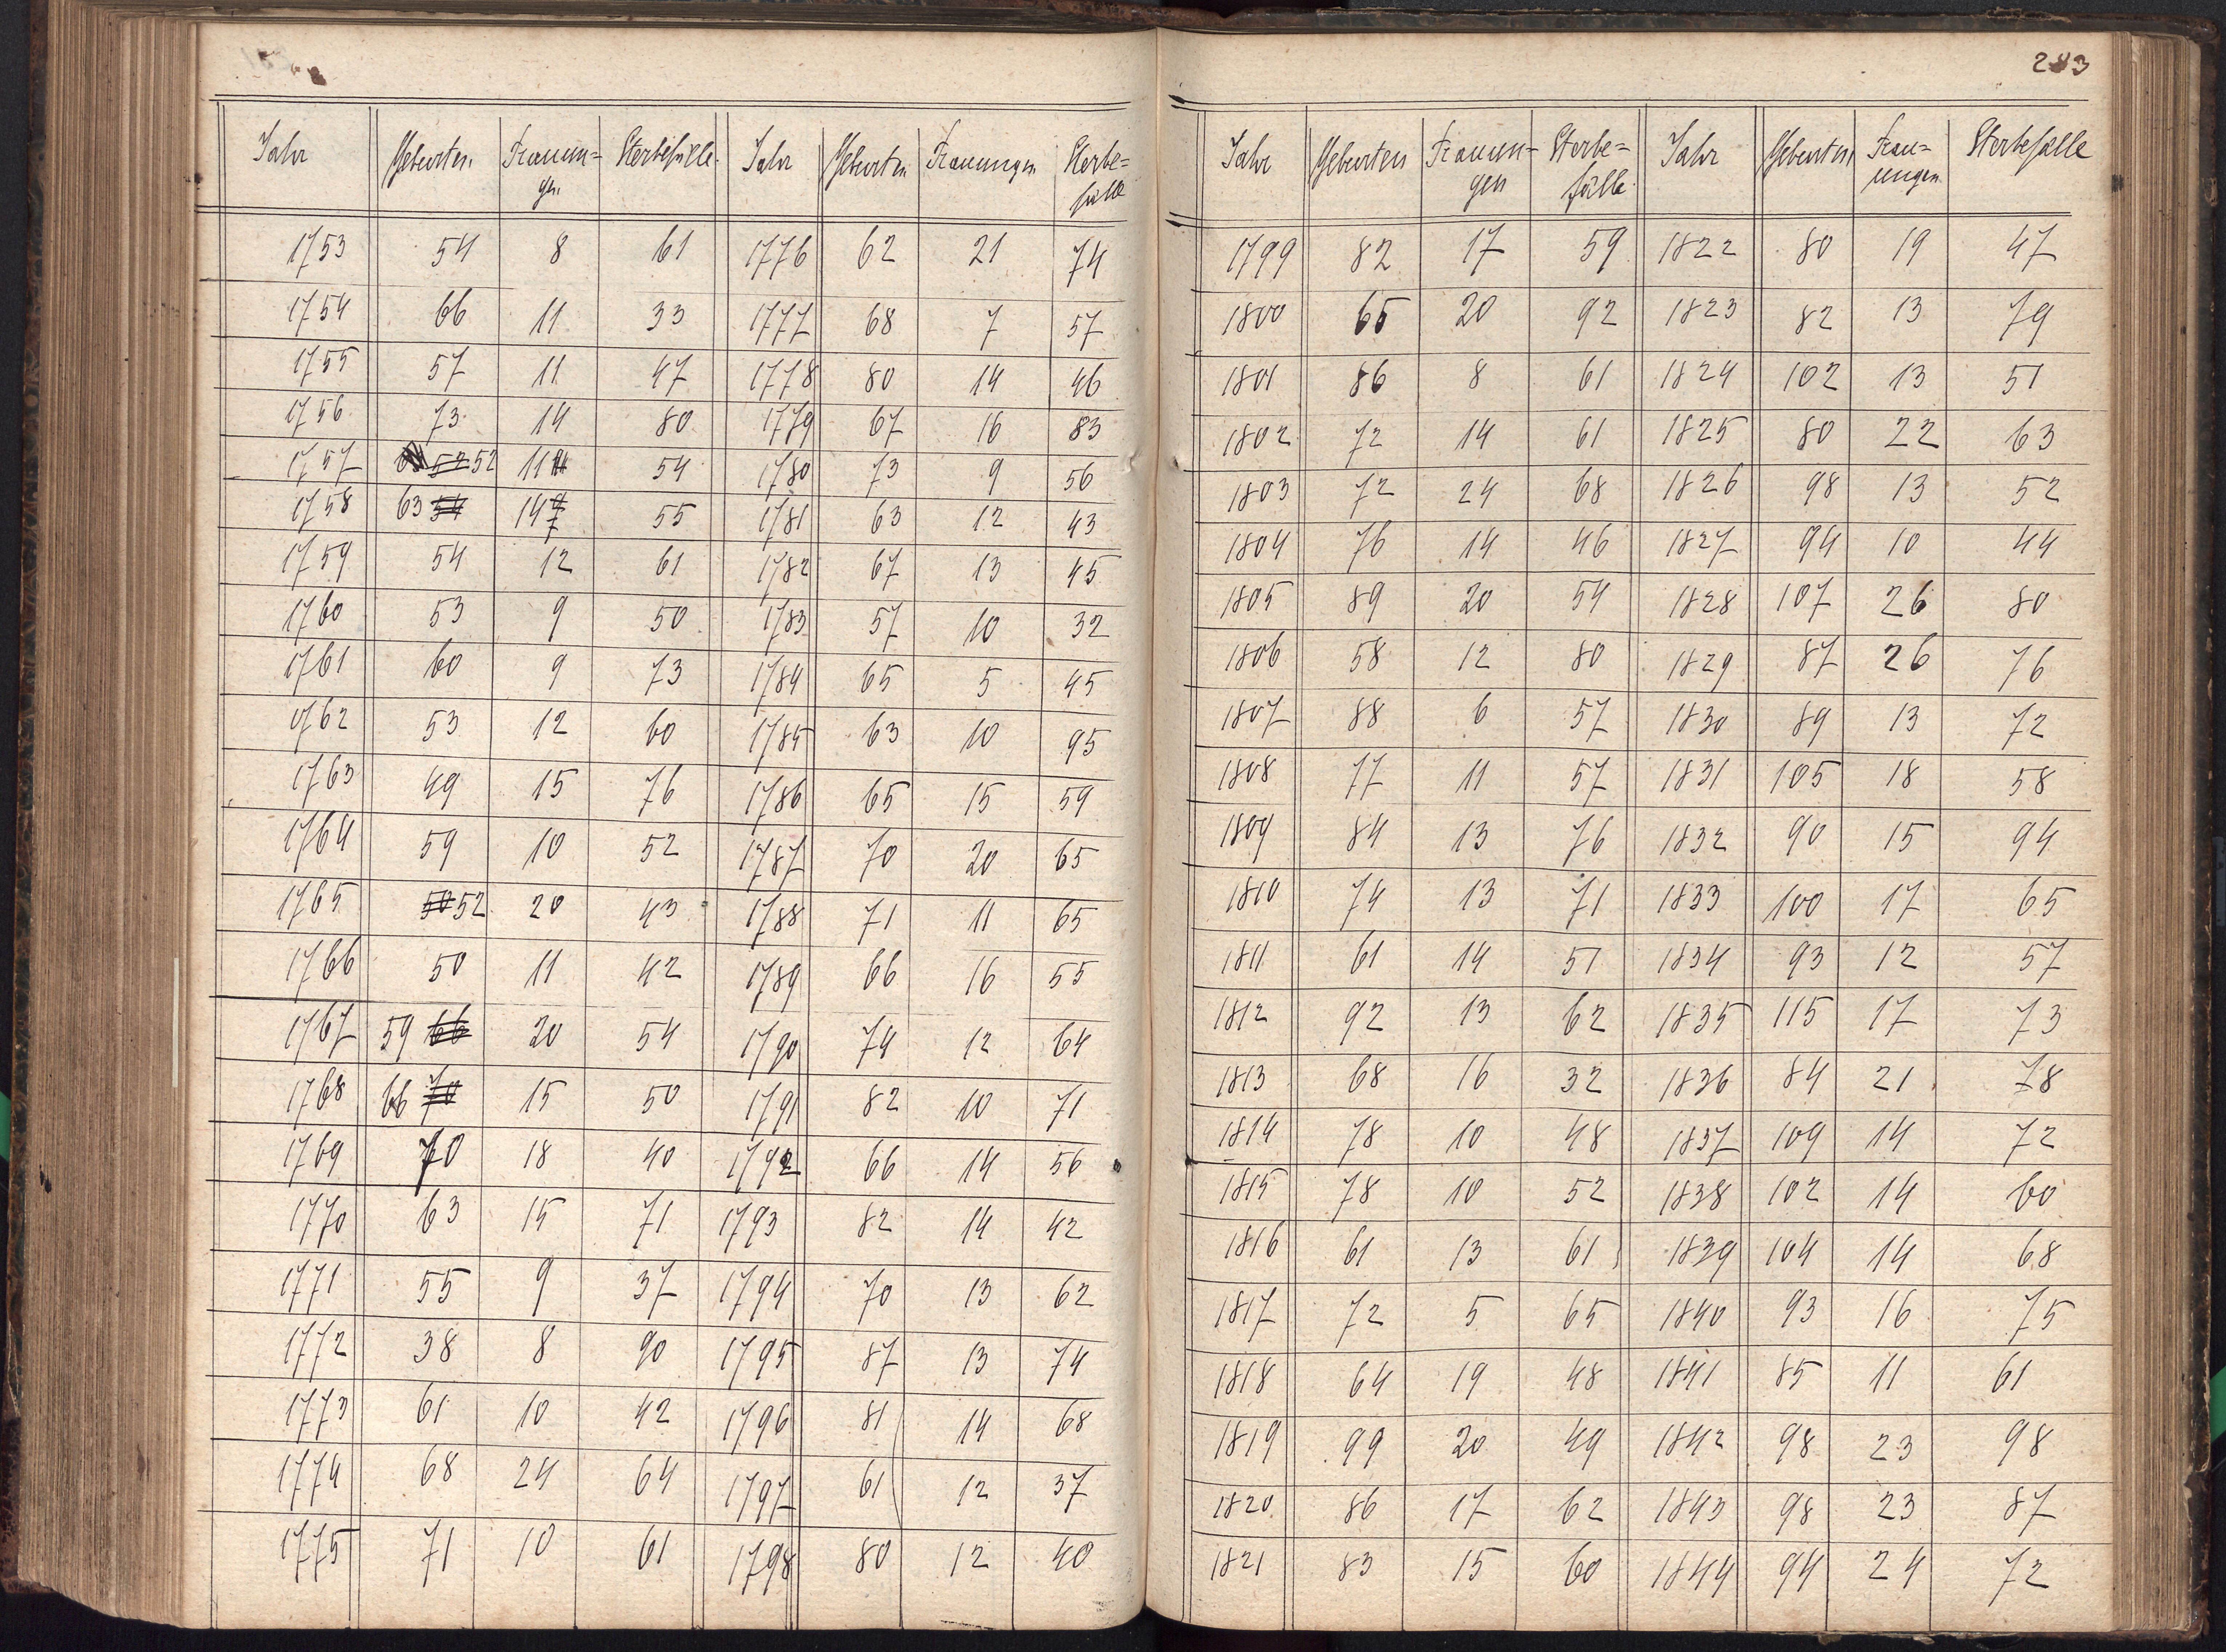 283
Jahr Geburten Trauun= Sterbefälle. Jahr Geburten Trauungen Sterbe=
gen fälle
1753 54 8 61 1776 62 21 74
1754 66 11 33 1777 68 7 57
1755 57 11 47 1778 80 14 46
1756 73 14 80 1779 67 16 83
1757 52 52 11 54 1780 73 9 56
1758 63 54 14 7 55 1781 63 12 43
1759 54 12 61 1782 67 13 45
1760 53 9 50 1783 57 10 32
1761 60 9 73 1784 65 5 45
1762 53 12 60 1785 63 10 95
1763 49 15 76 1786 65 15 59
1764 59 10 52 1787 70 20 65
1765 50 52 20 43 1788 71 11 65
1766 50 11 42 1789 66 16 55
1767 59 66 20 54 1790 74 12 64
1768 66 70 15 50 1791 82 10 71
1769 70 18 40 1792 66 14 56
1770 63 15 71 1793 82 14 42
1771 55 9 37 1794 70 13 62
1772 38 8 90 1795 87 13 74
1773 61 10 42 1796 81 14 68
1774 68 24 64 1797 61 12 37
1775 71 10 61 1798 80 12 40
Jahr Geburten Trauun= Sterbe= Jahr Geburten Trau= Sterbefälle
gen fälle. ungen
1799 82 17 59 1822 80 19 47
1800 65 20 92 1823 82 13 79
1801 86 8 61 1824 102 13 51
1802 72 14 61 1825 80 22 63
1803 72 24 68 1826 98 13 52
1804 76 14 46 1827 94 10 44
1805 89 20 54 1828 107 26 80
1806 58 12 80 1829 87 26 76
1807 88 6 57 1830 89 13 72
1808 77 11 57 1831 105 18 58
1809 84 13 76 1832 90 15 94
1810 74 13 71 1833 100 17 65
1811 61 14 51 1834 93 12 57
1812 92 13 62 1835 115 17 73
1813 68 16 32 1836 84 21 78
1814 78 10 48 1837 109 14 72
1815 78 10 52 1838 102 14 60
1816 61 13 61 1839 104 14 68
1817 72 5 65 1840 93 16 75
1818 64 19 48 1841 85 11 61
1819 99 20 49 1842 98 23 98
1820 86 17 62 1843 98 23 87
1821 83 15 60 1844 94 24 72